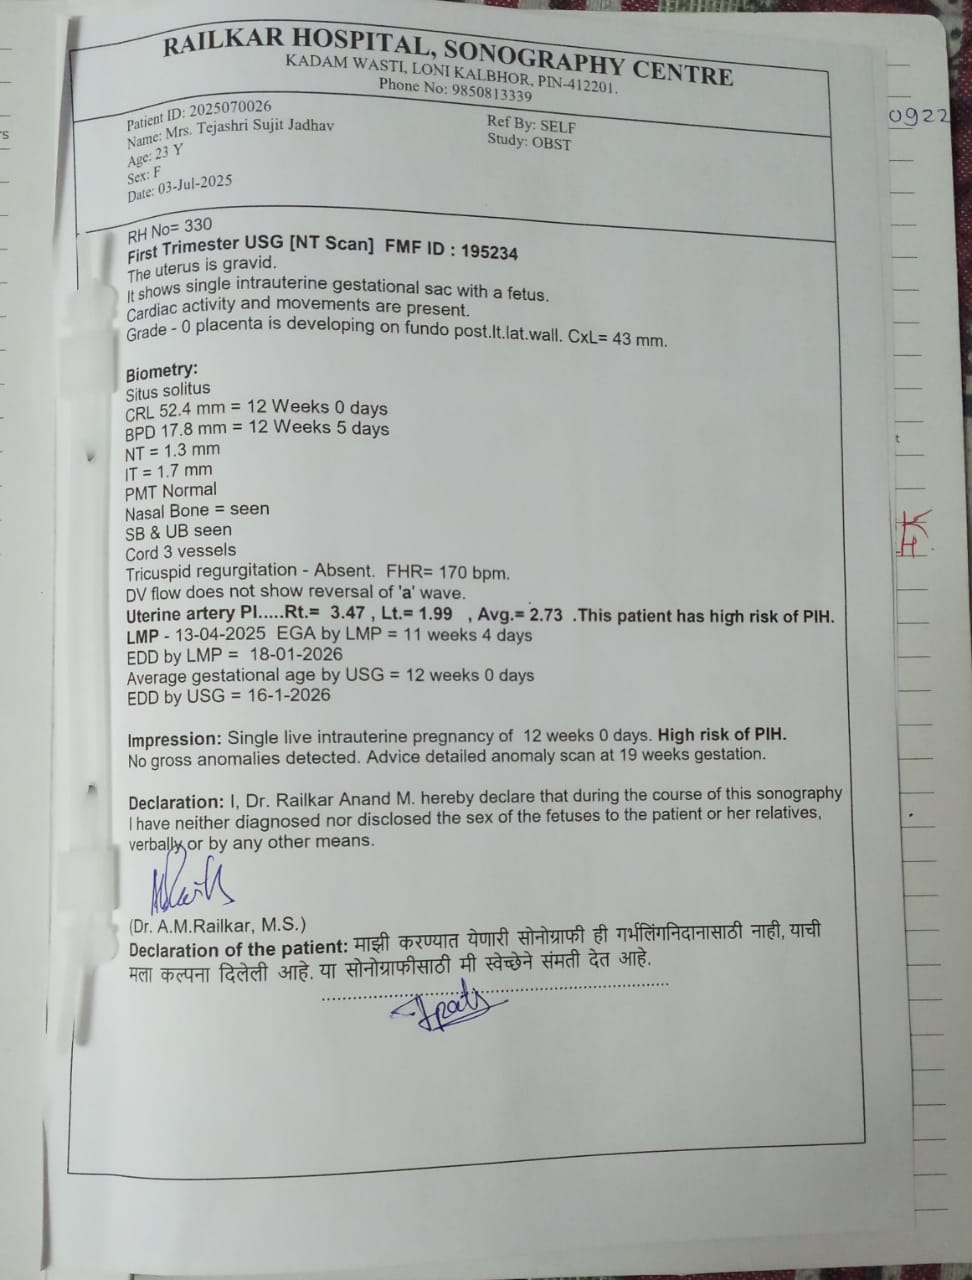 RAILKAR HOSPITAL, SONOGRAPHY CENTRE
KADAM WASTI, LONI KALBHOR, PIN-412201.
Phone No: 9850813339
Patient ID: 2025070026
Name: Mrs. Tejashri Sujit Jadhav
Age: 23 Y
Sex: F
Date: 03-Jul-2025
Ref By: SELF
Study: OBST
0922
RH No= 330
First Trimester USG [NT Scan] FMF ID : 195234
The uterus is gravid.
It shows single intrauterine gestational sac with a fetus.
Cardiac activity and movements are present.
Grade - 0 placenta is developing on fundo post.lt.lat.wall. CxL= 43 mm.
Biometry:
Situs solitus
CRL 52.4 mm = 12 Weeks 0 days
BPD 17.8 mm = 12 Weeks 5 days
NT = 1.3 mm
IT = 1.7 mm
PMT Normal
Nasal Bone = seen
SB & UB seen
Cord 3 vessels
Tricuspid regurgitation - Absent. FHR= 170 bpm.
DV flow does not show reversal of 'a' wave.
Uterine artery PI.....Rt.= 3.47 , Lt.= 1.99 , Avg.= 2.73 .This patient has high risk of PIH.
LMP - 13-04-2025 EGA by LMP = 11 weeks 4 days
EDD by LMP = 18-01-2026
Average gestational age by USG = 12 weeks 0 days
EDD by USG = 16-1-2026
Impression: Single live intrauterine pregnancy of 12 weeks 0 days. High risk of PIH.
No gross anomalies detected. Advice detailed anomaly scan at 19 weeks gestation.
Declaration: I, Dr. Railkar Anand M. hereby declare that during the course of this sonography
I have neither diagnosed nor disclosed the sex of the fetuses to the patient or her relatives,
verbally or by any other means.
(Dr. A.M.Railkar, M.S.)
Declaration of the patient: माझी करण्यात येणारी सोनोग्राफी ही गर्भलिंगनिदानासाठी नाही, याची
मला कल्पना दिलेली आहे. या सोनोग्राफीसाठी मी स्वेच्छेने संमती देत आहे.